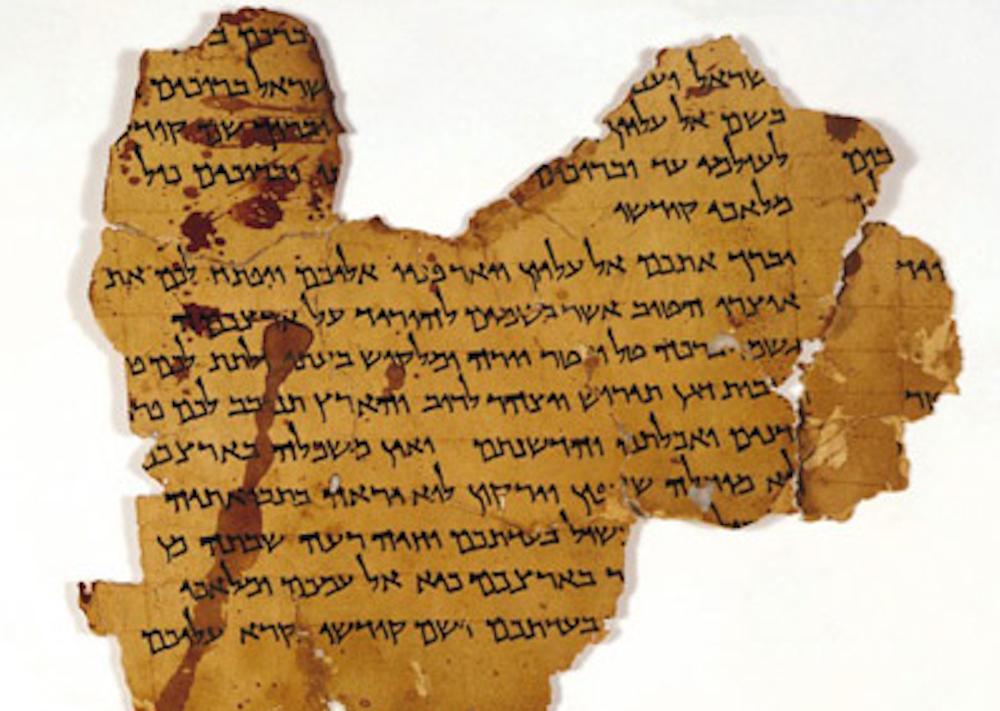 וברכם ב
שראל וענ שראל ברוכים
בשם אל עליון וברוך שם קודש
לעולמי עד וברוכים תו וברוכים כול
מלאכי קודשו
יברך אתכם אל עליון ויאר פניו אליכם ויפתח לכם את
אוצרו הטוב אשר בשמים להוריד על ארצכמה
גשמי ברכה טל ומטר יורה ומלקוש בעתו ולתת לכם
בות דגן תירוש ויצהר לרוב והארץ תנובב לכם פר
דנים ואכלתם והדשנתם ואין משכלה בארצכם
לא מוחלה שדפון וירקון לוא יראה בתבואתיה
שול בעדתכם וחיה רעה שבתה מן
ר בארצכם כיא אל עמכם ומלאכי
בעדתכם ושם קודשו נקרא עליכם